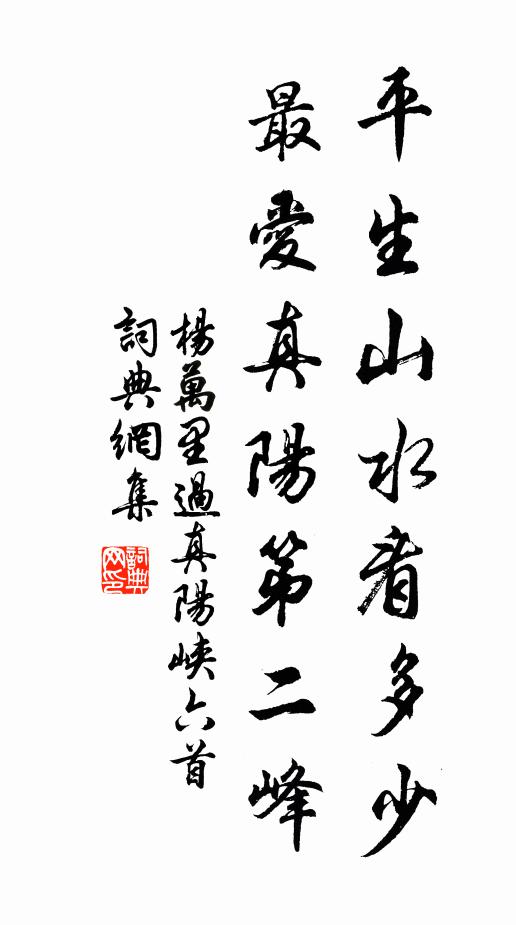 平生山水看多少
最愛真陽第二峰
楊萬里過真陽峽六首
詞典網集
詞典網印